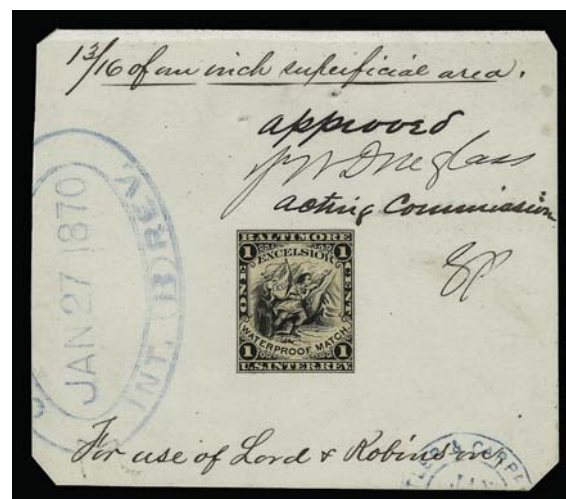 1 3/16 of an inch superficial area.
approved
J W Douglass
acting Commission
BALTIMORE
1 EXCELSIOR 1
ONE CENT
WATERPROOF MATCH.
1 1
U.S. INTER. REV.
INT. REV.
JAN 27 1870
For use of Lord & Robinson.